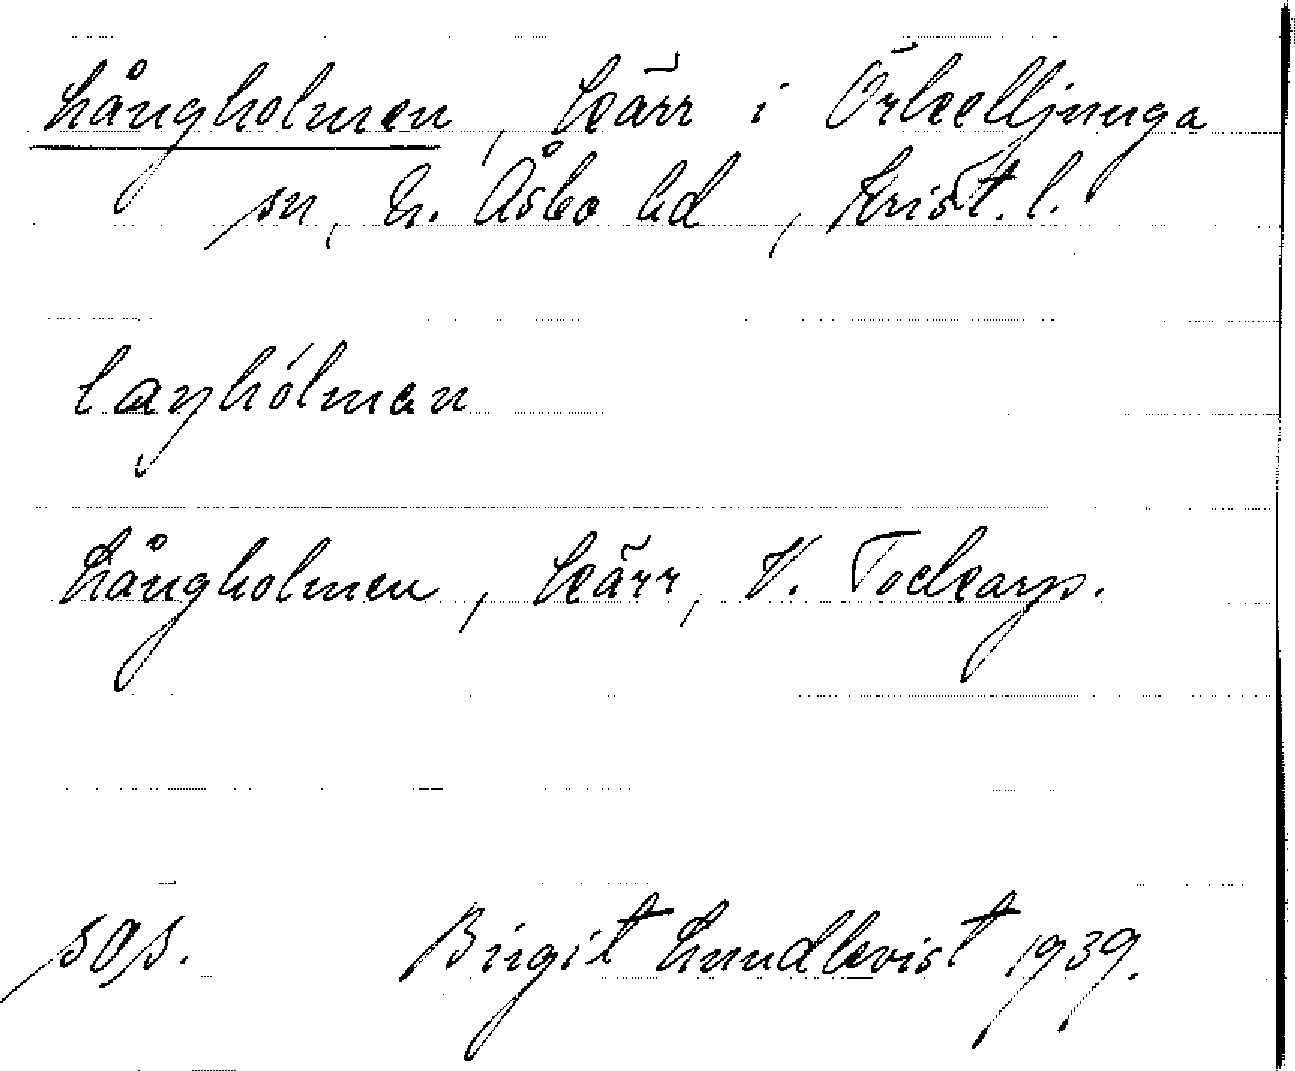 Långholmen, kärr i Örkelljunga
sn, N. Åsbo hd, Krist. l.
laŋhólman
Långholmen, kärr, V. Tockarp.
sos. Birgit Lundkvist 1939.